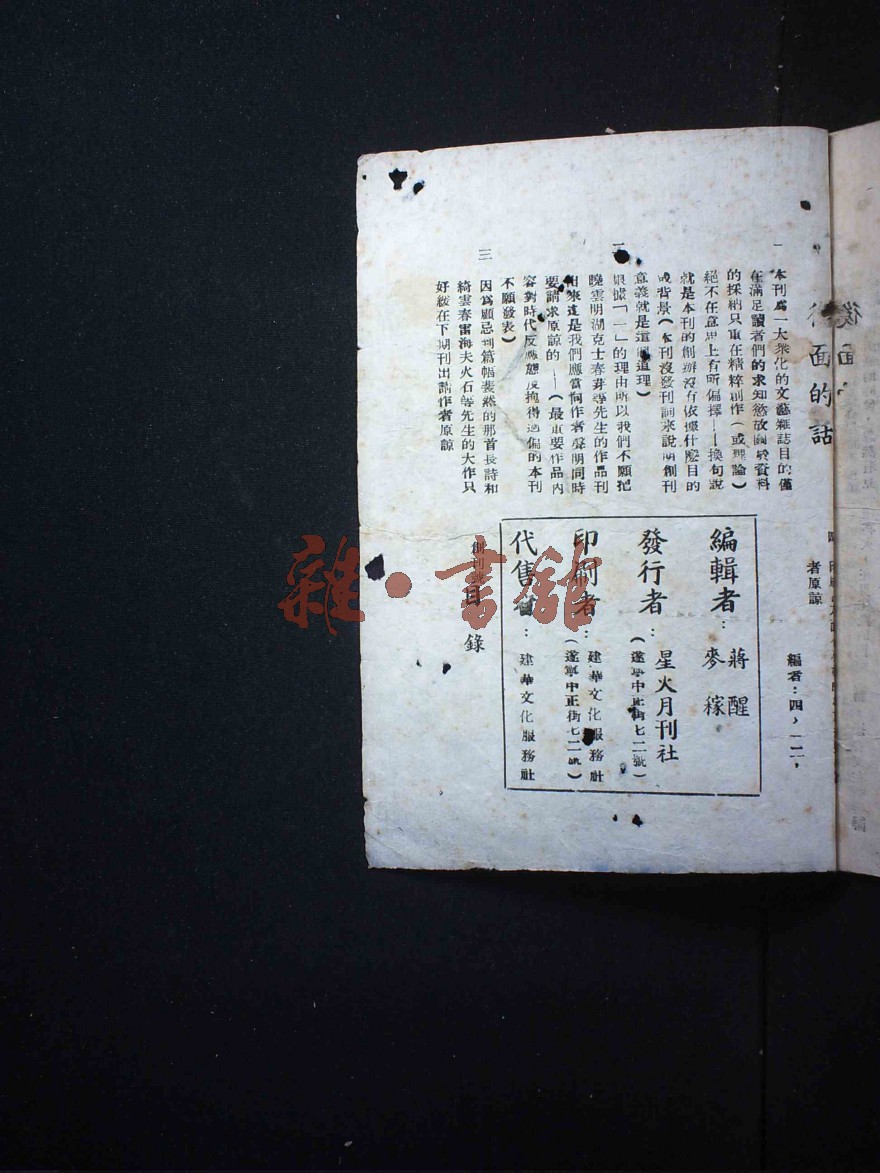 後面的話
一 本刊為一大衆化的文藝雜誌目的僅
在滿足讀者們的求知慾故關於資料
的採納只重在精粹創作（或理論）
絕不在意思上有所偏擇——換句說
就是本刊的創辦沒有依據什麽目的
或背景（本刊沒發刊詞來說明創刊
意義就是這個道理）
二 根據「一」的理由所以我們不願把
曉雲明湖克士春芽等先生的作品刊
出來這是我們應當向作者聲明同時
要請求原諒的——（最重要作品內
容對時代反應態度拘得過偏的本刊
不願發表）
三 因為顧忌到篇幅裴然的那首長詩和
綺雲春雷海夫火石等先生的大作只
好緩在下期刊出請作者原諒
者原諒
編者：四、一二，
編輯者：蔣醒
麥稼
發行者：星火月刊社
（遂寧中正街七二號）
印刷者：建華文化服務社
（遂寧中正街七二號）
代售者：建華文化服務社
創刊號目錄
雜·書館